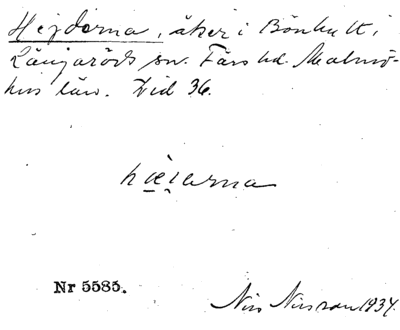 Hejderna, åker i Bönhult i
Långaröds sn. Färs hd. Malmö-
hus län. Vid 36.
hɶi̯arna
Nr 5585.
Nils Nilsson 1934.